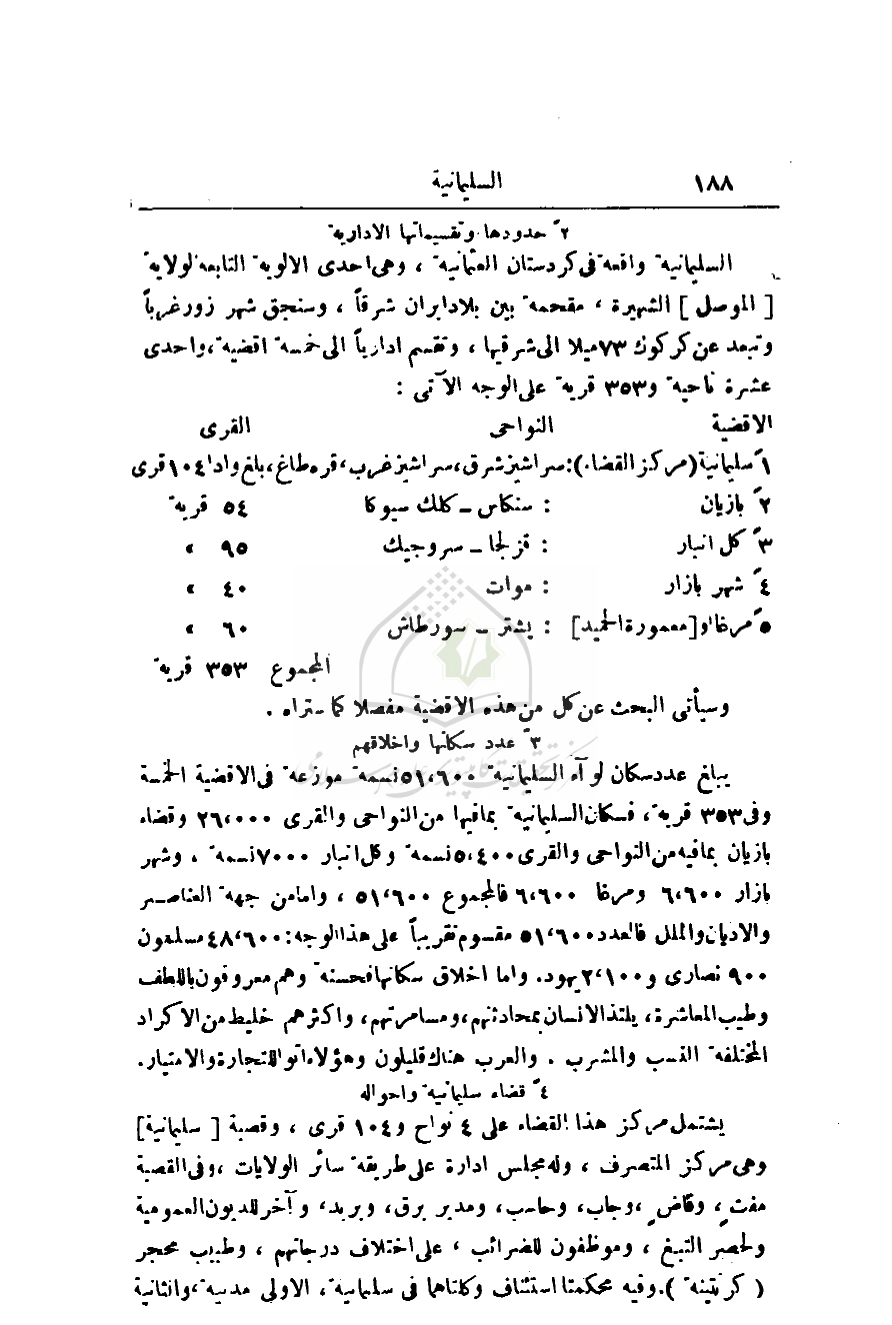 ١٨٨ السليمانية
٢ً حدودها وتقسيماتها الادارية
السليمانية واقعة في كردستان العثمانية ، وهي احدى الالوية التابعة لولاية
[ الموصل ] الشهيرة ، مقحمة بين بلاد ايران شرقاً ، وسنجق شهر زور غرباً
وتبعد عن كركوك ٧٣ ميلا الى شرقيها ، وتقسم ادارياً الى خمسة اقضية ، واحدى
عشرة ناحية و٣٥٣ قرية على الوجه الآتى :
الاقضية النواحى القرى
١ً سليمانية (مركز القضاء) : سراشيز شرق ، سراشيز غرب ، قره طاغ ، بلغ وادا ١٠٤ قرى
٢ً بازيان : سنكاس ــ كلك سيوكا ٥٤ قرية
٣ً كل انبار : قزلجا ــ سروجيك ٩٥ »
٤ً شهر بازار : موات ٤٠ »
٥ً مرغا او [معمورة الحميد] : پشتر ــ سورطاش ٦٠ »
المجموع ٣٥٣ قرية
وسيأتى البحث عن كل من هذه الاقضية مفصلا كما ستراه .
٣ً عدد سكانها واخلاقهم
يبلغ عدد سكان لوآء السليمانية ٥١،٦٠٠ نسمة موزعة في الاقضية الخمسة
وفى ٣٥٣ قرية ، فسكان السليمانية بمافيها من النواحى والقرى ٢٦،٠٠٠ وقضاء
بازيان بمافيه من النواحى والقرى ٥،٤٠٠ نسمة وكل انبار ٧٠٠٠ نسمة ، وشهر
بازار ٦،٦٠٠ ومرغا ٦،٦٠٠ فالمجموع ٥١،٦٠٠ ، وامامن جهة العناصر
والاديان والملل فالعدد ٥١،٦٠٠ مقسوم تقريباً على هذا الوجه : ٤٨،٦٠٠ مسلمون
٩٠٠ نصارى و ٢،١٠٠ يهود. واما اخلاق سكانها فحسنة وهم معروفون باللطف
وطيب المعاشرة ، يلتذ الانسان بمحادثتهم ، ومسامرتهم ، واكثرهم خليط من الاكراد
المختلفة النسب والمشرب . والعرب هناك قليلون وهؤلاء اتوا للتجارة والامتيار.
٤ً قضاء سليمانية واحواله
يشتمل مركز هذا القضاء على ٤ نواح و١٠٤ قرى ، وقصبة [ سليمانية ]
وهى مركز المتصرف ، وله مجلس ادارة على طريقة سائر الولايات ، وفى القصبة
مفتٍ ، وقاضٍ ، وجاب ، وحاسب ، ومدير برق ، وبريد ، وآخر للديون العمومية
ولحصر التبغ ، وموظفون للضرائب ، على اختلاف درجاتهم ، وطبيب محجر
( كرنتينة ). وفيه محكمتا استئناف وكلتاهما في سليمانية ، الاولى مدنية ، والثانية